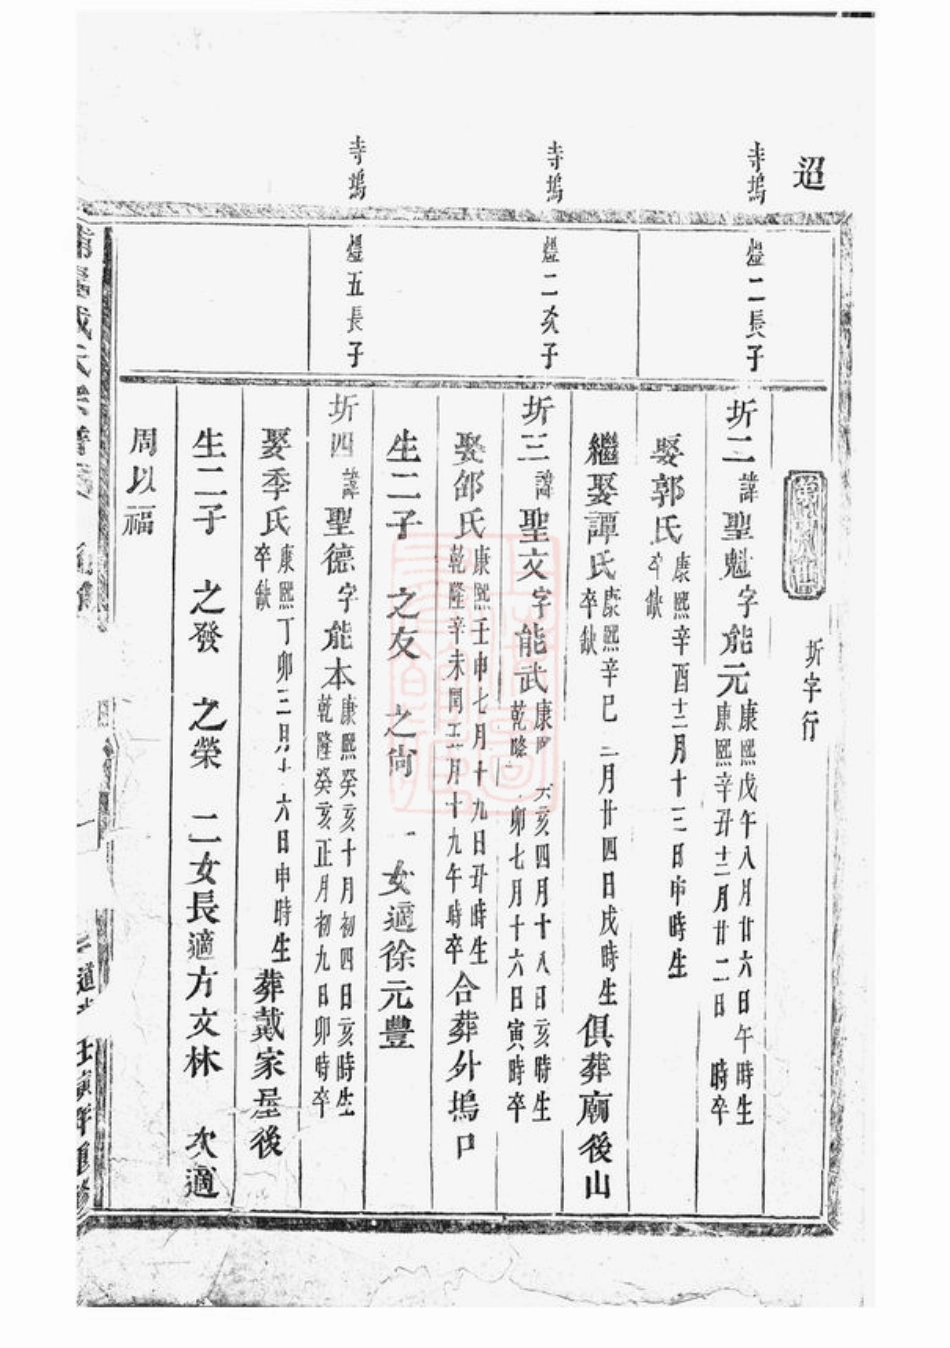 迢
寺塢
寺塢
寺塢
燈二長子
燈二次子
燈五長子
圻字行
圻二諱聖魁字能元
康熙戊午八月廿六日午時生
康熙辛丑十二月廿二日 時卒
娶郭氏
康熙辛酉十二月十三日申時生
卒缺
繼娶譚氏
康熙辛巳二月廿四日戌時生
卒缺
俱葬廟後山
圻三諱聖文字能武
康熙 亥四月十八日亥時生
乾隆 卯七月十六日寅時卒
娶邵氏
康熙壬申七月十九日丑時生
乾隆辛未閏五月十九午時卒
合葬外塢口
生二子 之友 之尚 一女適徐元豐
圻四諱聖德字能本
康熙癸亥十月初四日亥時生
乾隆癸亥正月初九日卯時卒
娶季氏
康熙丁卯三月十六日申時生
卒缺
葬戴家屋後
生二子 之發 之榮 二女長適方文林 次適
周以福